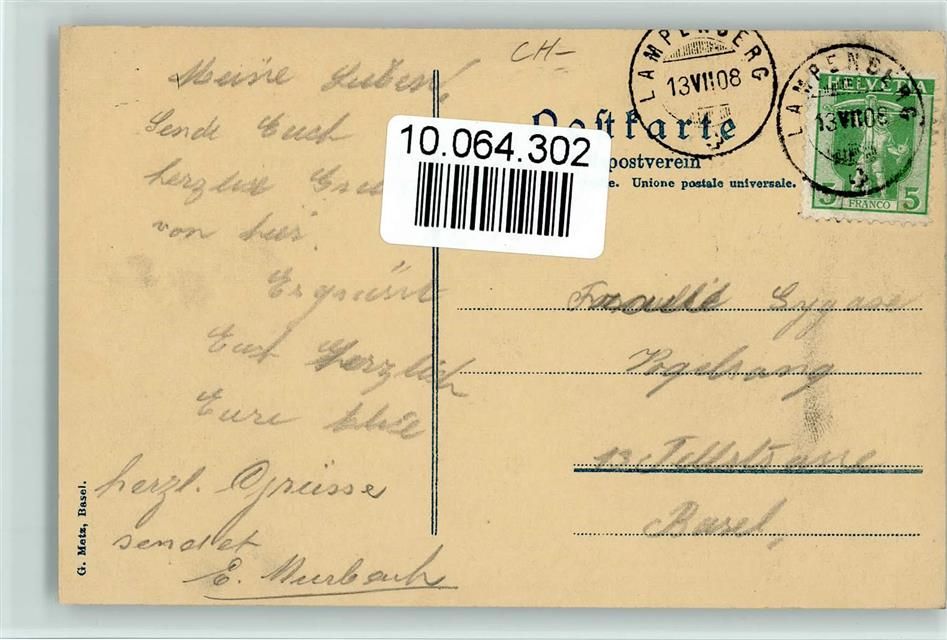 CH-
Meine Lieben
Sende Euch
herzliche
von hier.
Es grüsst
Euch Herzlich
Eure
herzl. Grüsse
sendet
E. Murbach
G. Metz, Basel.
10.064.302
Postkarte
postverein
e. Unione postale universale.
LAMPENBERG
13 VII 08
LAMPENBERG
13 VII 08
HELVETIA
5 FRANCO 5
Familie Gygax
Vogelsang
13 Tellstrasse
Basel,